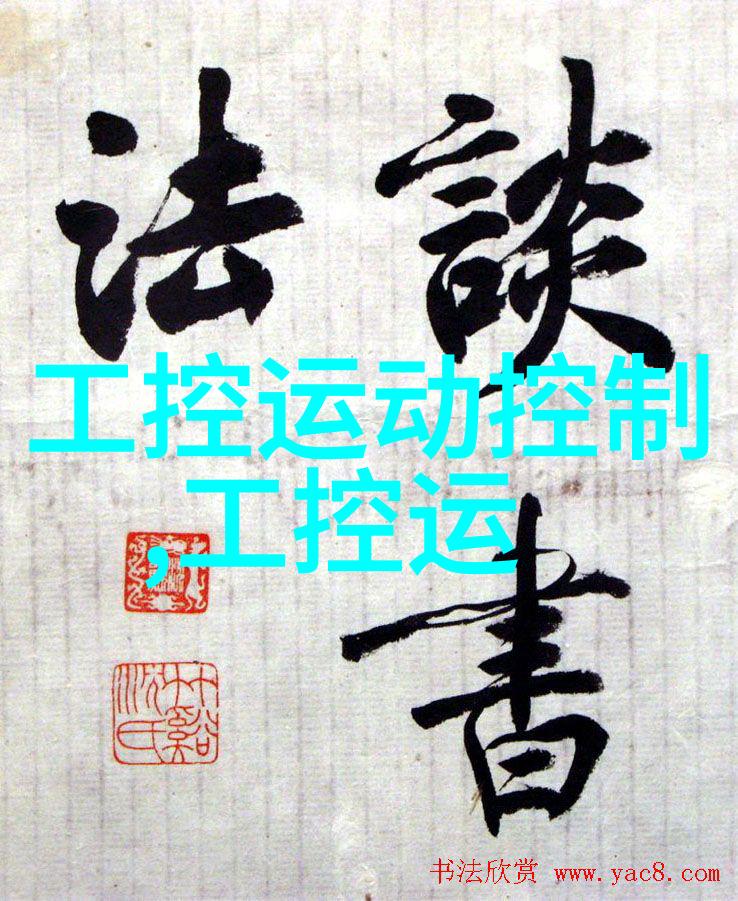 談書
法
工控运动控制
,工控运
书法欣赏 www.yac8.com